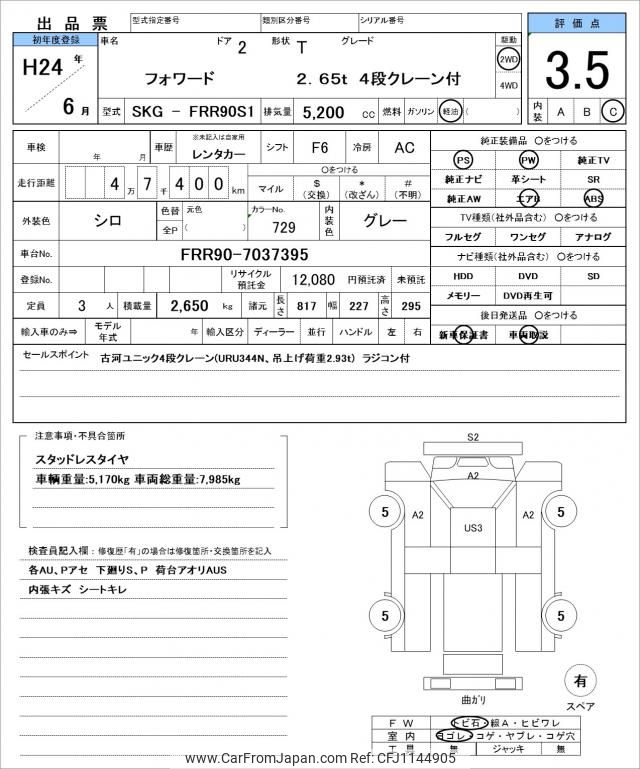 出品票 型式指定番号 類別区分番号 シリアル番号
初年度登録 車名 ドア 2 形状 T グレード 駆動 評価点
H24 年 フォワード 2.65t 4段クレーン付 2WD 3.5
6 月 4WD
型式 SKG - FRR90S1 排気量 5,200 cc 燃料 ガソリン 軽油 ( ) 内装 A B C
車検 年 月 車歴 ※未記入は自家用 レンタカー シフト F6 冷房 AC 純正装備品 〇をつける
PS PW 純正TV
走行距離 4 万 7 千 4 0 0 km 〇をつける マイル $ (交換) * (改ざん) # (不明) 純正ナビ 革シート SR
純正AW エアB ABS
外装色 シロ 色替 元色 カラーNo. 内装色 グレー TV種類(社外品含む) 〇をつける
全P ( ) 729 フルセグ ワンセグ アナログ
車台No. FRR90-7037395 ナビ種類(社外品含む) 〇をつける
登録No. リサイクル預託金 12,080 円預託済 未預託 HDD DVD SD
定員 3 人 積載量 2,650 kg 諸元 長さ 817 幅 227 高さ 295 メモリー DVD再生可
後日発送品 〇をつける
輸入車のみ⇒ モデル年式 年 輸入区分 ディーラー 並行 ハンドル 左 右 新車保証書 車両取説
セールスポイント 古河ユニック4段クレーン(URU344N、吊上げ荷重2.93t) ラジコン付
注意事項・不具合箇所
スタッドレスタイヤ
車輌重量:5,170kg 車両総重量:7,985kg
検査員記入欄 : 修復歴「有」の場合は修復箇所・交換箇所を記入
各AU、Pアセ 下廻りS、P 荷台アオリAUS
内張キズ シートキレ
S2
A2
5 A2 A2 5
US3
5 5
有
曲がり スペア
FW トビ石・線A・ヒビワレ
室内 ヨゴレ・コゲ・ヤブレ・コゲ穴
工具 無 ジャッキ 無
www.CarFromJapan.com Ref: CFJ1144905